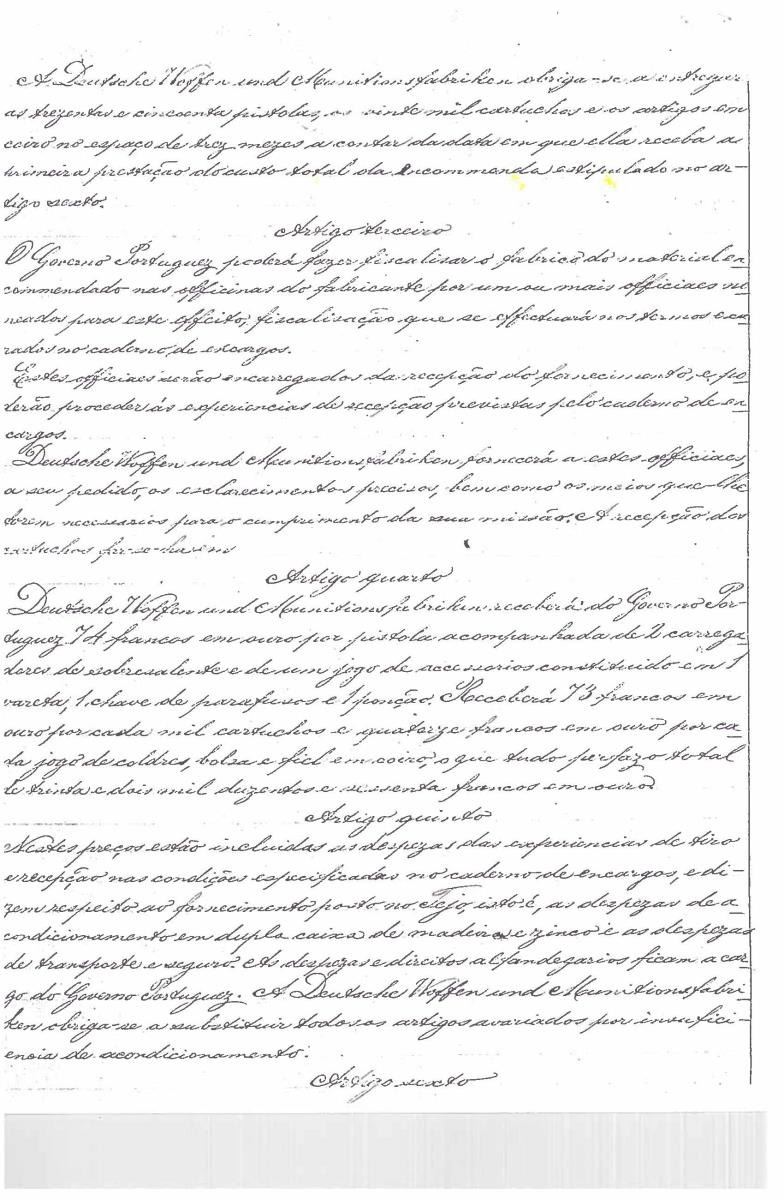 A Deutsche Woffen und Munitionsfabriken obriga-se a entregar
as trezentas e cincoenta pistolas, os vinte mil cartuchos e os artigos em
coiro no espaço de trez mezes a contar da data em que ella receba a
primeira prestação do custo total da encommenda estipulado no ar-
tigo sexto.
Artigo terceiro
O Governo Portuguez poderá fazer fiscalisar o fabrico do material en
commendado nas officinas do fabricante por um ou mais officiaes no
meados para este effeito, fiscalisação que se effectuará nos termos exa
rados no caderno de encargos.
Estes officiaes serão encarregados da recepção do fornecimento, e po
derão proceder ás experiencias de recepção previstas pelo caderno de en
cargos.
Deutsche Woffen und Munitionsfabriken fornecerá a estes officiaes,
a seu pedido, os esclarecimentos precisos, bem como os meios que lhe
forem necessarios para o cumprimento da sua missão. A recepção dos
cartuchos far-se-ha em
Artigo quarto
Deutsche Woffen und Munitionsfabriken receberá do Governo Por-
tuguez 74 francos em ouro por pistola acompanhada de 2 carrega
dores de sobresalente e de um jogo de accessorios constituido em 1
vareta, 1 chave de parafusos e 1 ponção. Receberá 73 francos em
ouro por cada mil cartuchos e quatorze francos em ouro por ca
da jogo de coldres, bolsa e fiel em coiro, o que tudo perfaz o total
de trinta e dois mil duzentos e sessenta francos em ouro.
Artigo quinto
Nestes preços estão incluidas as despezas das experiencias de tiro
e recepção nas condições especificadas no caderno de encargos, e di-
zem respeito ao fornecimento posto no Tejo, isto é, as despezas de a
condicionamento em dupla caixa de madeira e zinco e as despezas
de transporte e seguro. As despezas e direitos alfandegarios ficam a car-
go do Governo Portuguez. A Deutsche Woffen und Munitionsfabri-
ken obriga-se a substituir todos os artigos avariados por insufici-
encia de acondicionamento.
Artigo sexto